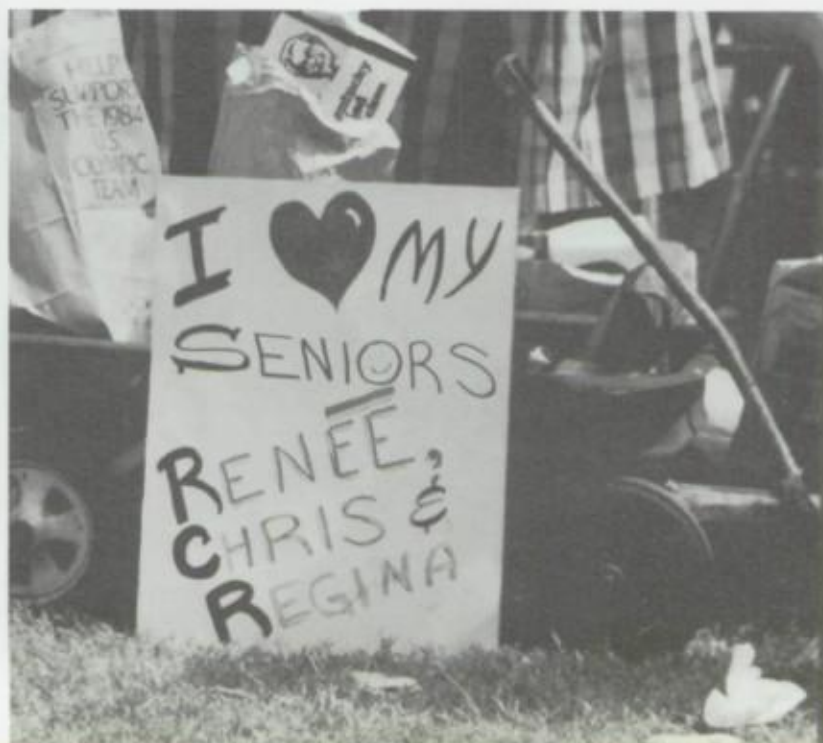 HELP
SUPPORT
THE 1984
U.S.
OLYMPIC
TEAM
I ♥ MY
SENIORS
RENEE,
CHRIS &
REGINA